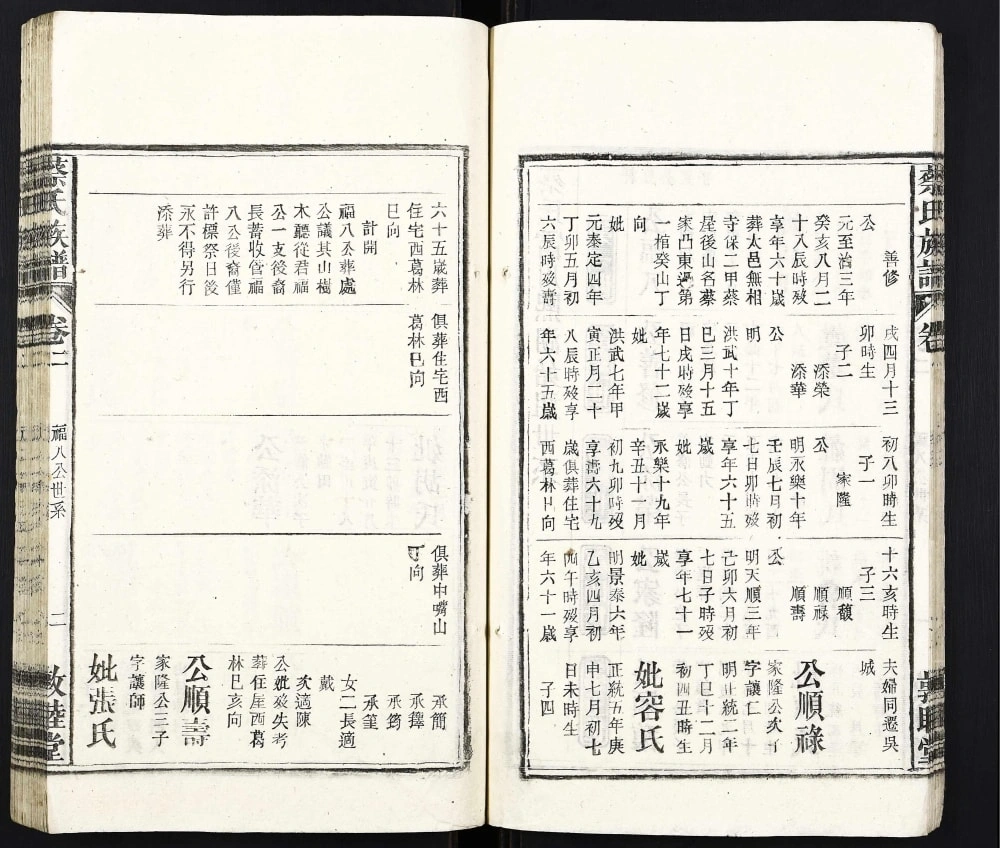 蔡氏族譜
卷
敦睦堂
善修
公
元至治三年
癸亥八月二
十八辰時歿
享年六十歲
葬太邑無相
寺保二甲蔡
屋後山名蔡
家凸東邊第
一棺癸山丁
向
妣
元泰定四年
丁卯五月初
六辰時歿壽
戌四月十三
卯時生
子二
添榮
添華
公
明
洪武十年丁
巳三月十五
日戌時歿享
年七十二歲
妣
洪武七年甲
寅正月二十
八辰時歿享
年六十五歲
初八卯時生
子一
家隆
公
明永樂十年
壬辰七月初
七日卯時歿
享年六十五
歲
妣
永樂十九年
辛丑十一月
初九卯時歿
享壽六十九
歲俱葬住宅
西葛林巳向
十六亥時生
子三
順馥
順祿
順壽
公
明天順三年
己卯六月初
七日子時歿
享年七十一
歲
妣
明景泰六年
乙亥四月初
四午時歿享
年六十一歲
夫婦同遷吳
城
公順祿
家隆公次子
字讓仁
明正統二年
丁巳十二月
初四丑時生
妣容氏
正統五年庚
申七月初七
日未時生
子四
六十五歲葬
住宅西葛林
巳向
計開
福八公葬處
公議其山樹
木聽從君福
公一支後裔
長蓄收管福
八公後裔僅
許標祭日後
永不得另行
添葬
俱葬住宅西
葛林巳向
俱葬中嘴山
丁向
承簡
承籜
承筠
承箽
女二長適
次適陳
戴
公妣歿失考
葬住屋西葛
林巳亥向
公順壽
家隆公三子
字讓師
妣張氏
蔡氏族譜
卷二
福八公世系
二
敦睦堂